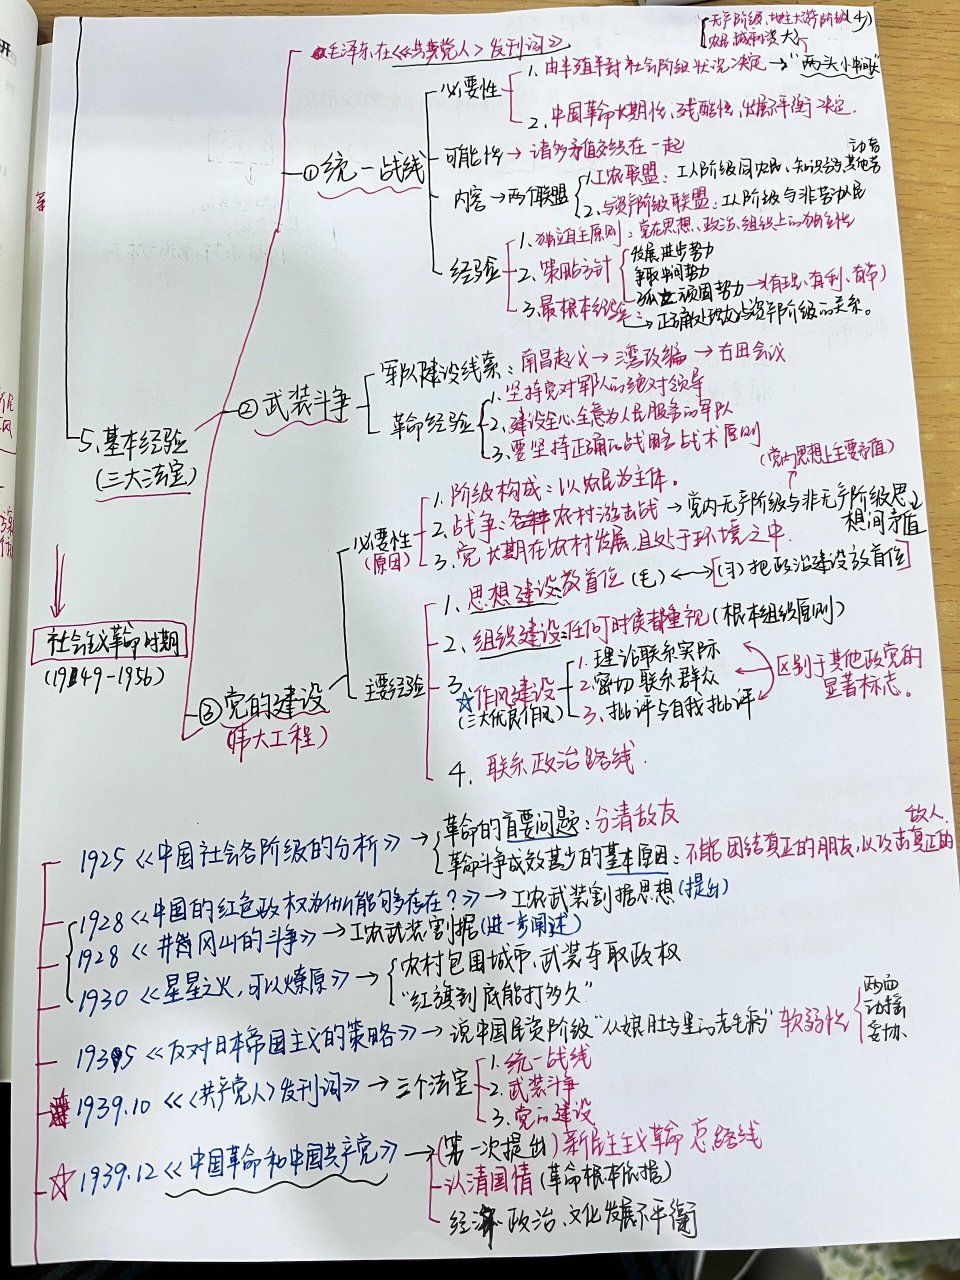 无产阶级、地主大资阶级(少)
农民 城市小资 大
毛泽东在《<共产党人>发刊词》
1. 由半殖半封社会阶级状况决定 → "两头小中间大"
必要性
2. 中国革命长期性、残酷性、发展不平衡决定.
① 统一战线
可能性 → 诸多矛盾交织在一起
内容 → 两个联盟
1. 工农联盟：工人阶级同农民、知识分子、其他劳动者
2. 与资产阶级联盟：工人阶级与非劳动人民
经验
1. 独立自主原则：党在思想、政治、组织上的独立性
2. 策略方针
发展进步势力
争取中间势力
孤立顽固势力 → (有理、有利、有节)
3. 最根本经验：
→ 正确处理好与资产阶级的关系。
5. 基本经验
(三大法宝)
② 武装斗争
军队建设线索：南昌起义 → 三湾改编 → 古田会议
革命经验
1. 坚持党对军队的绝对领导
2. 建设全心全意为人民服务的军队
3. 要坚持正确的战略战术原则
(党内思想上主要矛盾)
必要性
(原因)
1. 阶级构成：以农民为主体。
2. 战争：农村游击战 → 党内无产阶级与非无产阶级思想间矛盾
3. 党长期在农村发展,且处于环境之中.
社会主义革命时期
(1949-1956)
③ 党的建设
(伟大工程)
主要经验
1. 思想建设:放首位 (毛) ⟷ [(习)把政治建设放首位]
2. 组织建设:任何时候都重视 (根本组织原则)
3. ☆作风建设
(三大优良作风)
1. 理论联系实际
2. 密切联系群众
3. 批评与自我批评
区别于其他政党的
显著标志。
4. 联系政治路线.
1925《中国社会各阶级的分析》→
革命的首要问题：分清敌友
革命斗争成效甚少的基本原因：不能团结真正的朋友,以攻击真正的敌人.
1928《中国的红色政权为什么能够存在？》→ 工农武装割据思想(提出)
1928《井冈山的斗争》→ 工农武装割据(进一步阐述)
1930《星星之火,可以燎原》→
农村包围城市、武装夺取政权
"红旗到底能打多久"
1935《反对日本帝国主义的策略》→ 说中国民资阶级"从娘肚子里的老毛病" 软弱性
两面
动摇
妥协
1939.10《<共产党人>发刊词》→ 三个法宝
1. 统一战线
2. 武装斗争
3. 党的建设
☆ 1939.12《中国革命和中国共产党》→ (第一次提出)新民主主义革命总路线
认清国情(革命根本依据)
经济 政治、文化发展不平衡